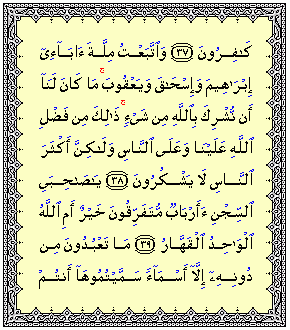 كَٰفِرُونَ ﴿٣٧﴾ وَٱتَّبَعْتُ مِلَّةَ ءَابَآءِىٓ
إِبْرَٰهِيمَ وَإِسْحَٰقَ وَيَعْقُوبَ ۚ مَا كَانَ لَنَآ
أَن نُّشْرِكَ بِٱللَّهِ مِن شَىْءٍ ۚ ذَٰلِكَ مِن فَضْلِ
ٱللَّهِ عَلَيْنَا وَعَلَى ٱلنَّاسِ وَلَٰكِنَّ أَكْثَرَ
ٱلنَّاسِ لَا يَشْكُرُونَ ﴿٣٨﴾ يَٰصَٰحِبَىِ
ٱلسِّجْنِ ءَأَرْبَابٌ مُّتَفَرِّقُونَ خَيْرٌ أَمِ ٱللَّهُ
ٱلْوَٰحِدُ ٱلْقَهَّارُ ﴿٣٩﴾ مَا تَعْبُدُونَ مِن
دُونِهِۦٓ إِلَّآ أَسْمَآءً سَمَّيْتُمُوهَآ أَنتُمْ